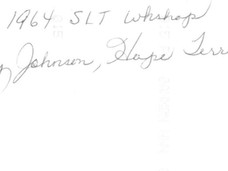 1964 SLT Wkshop
Johnson, Hope Terr